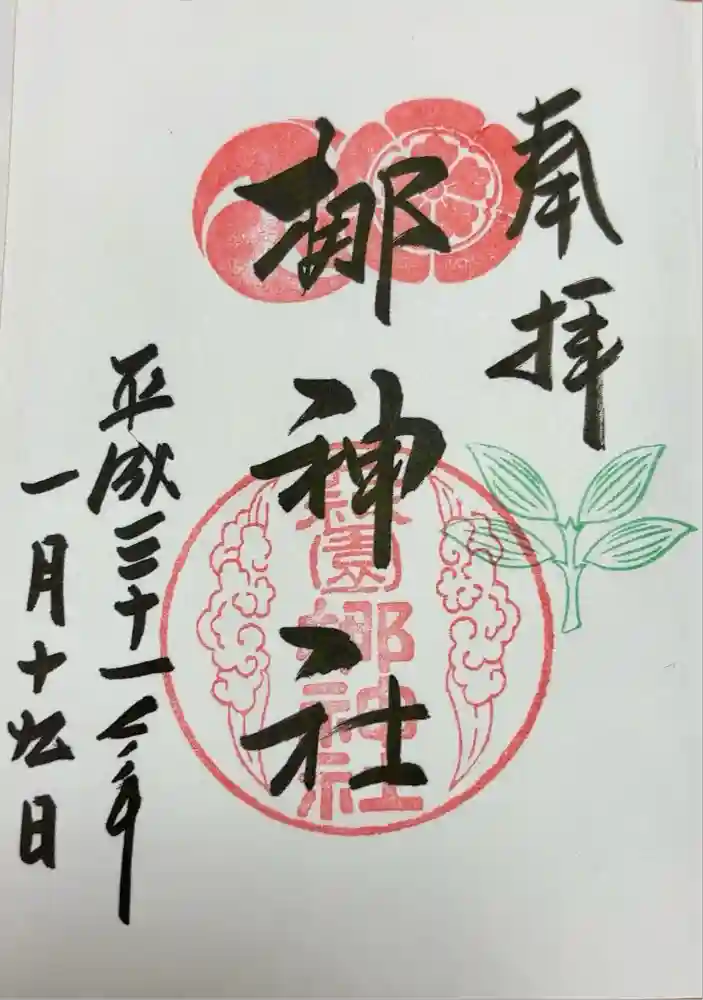 奉拝
梛神社
園梛神社
平成三十一年
一月十九日